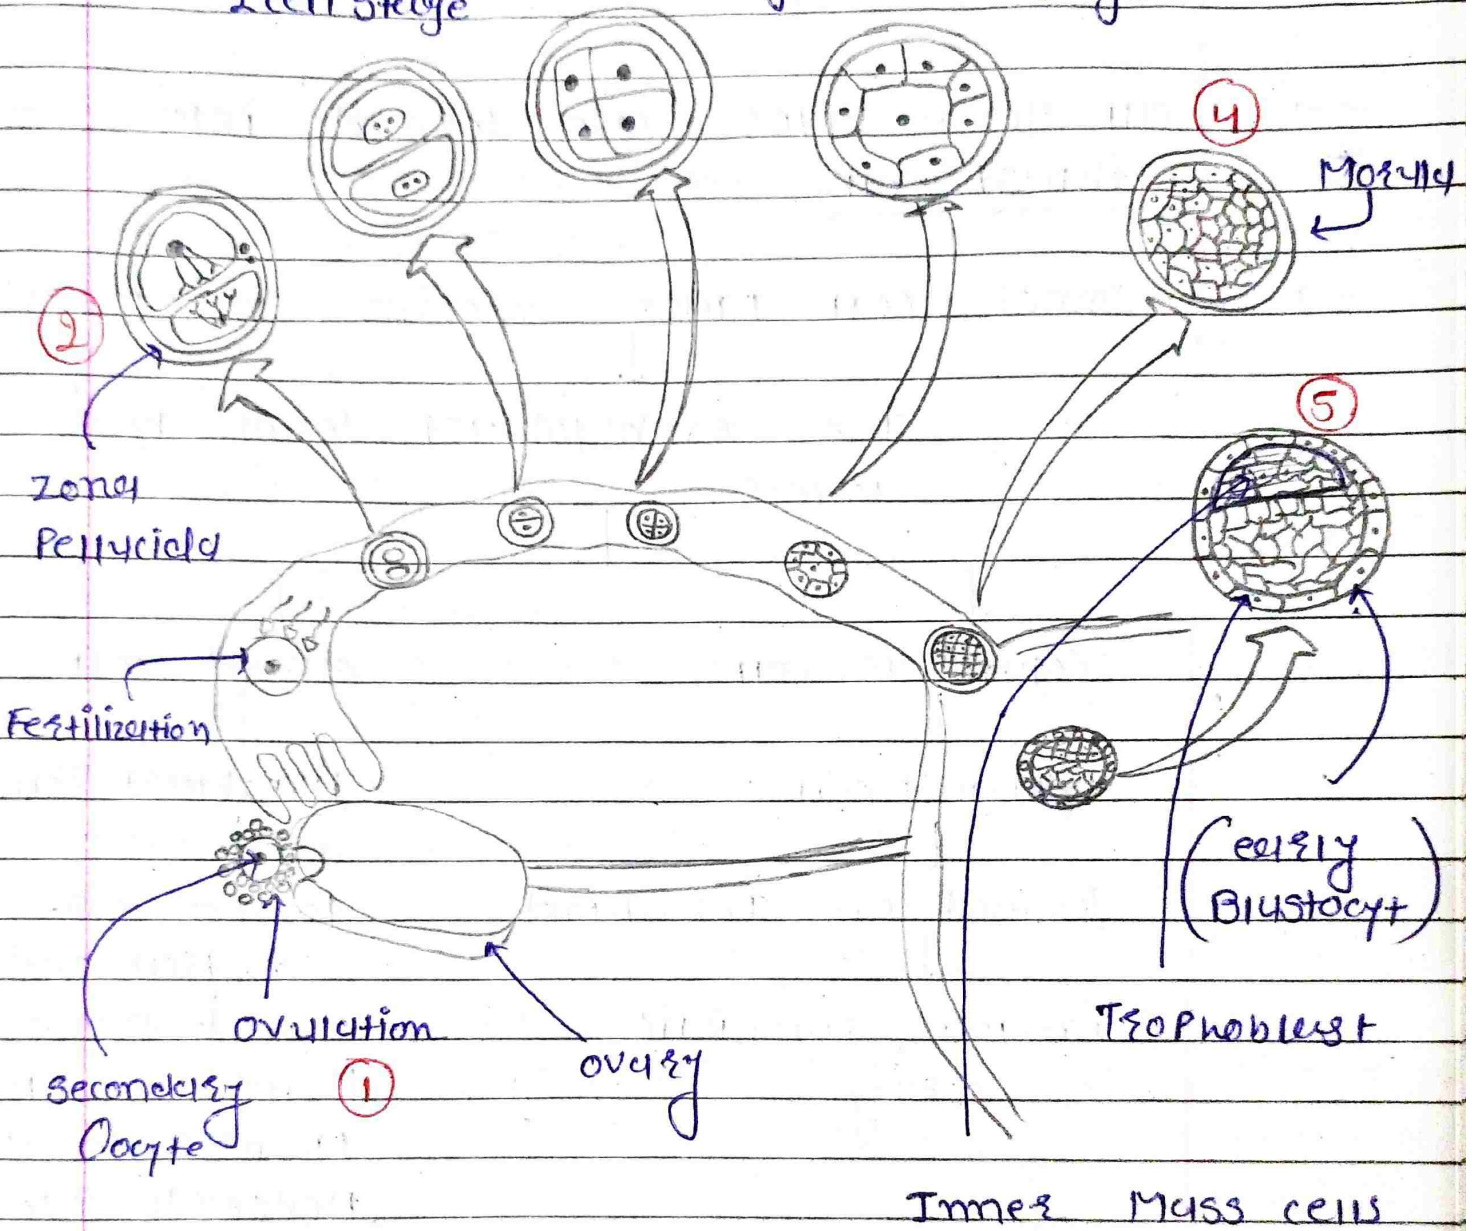 2cell stage
4
Morula
2
5
Zona
Pellucida
Fertilization
(early
Blastocyt)
Ovulation
Trophoblast
Ovary
Secondary
Oocyte
1
Inner Mass cells